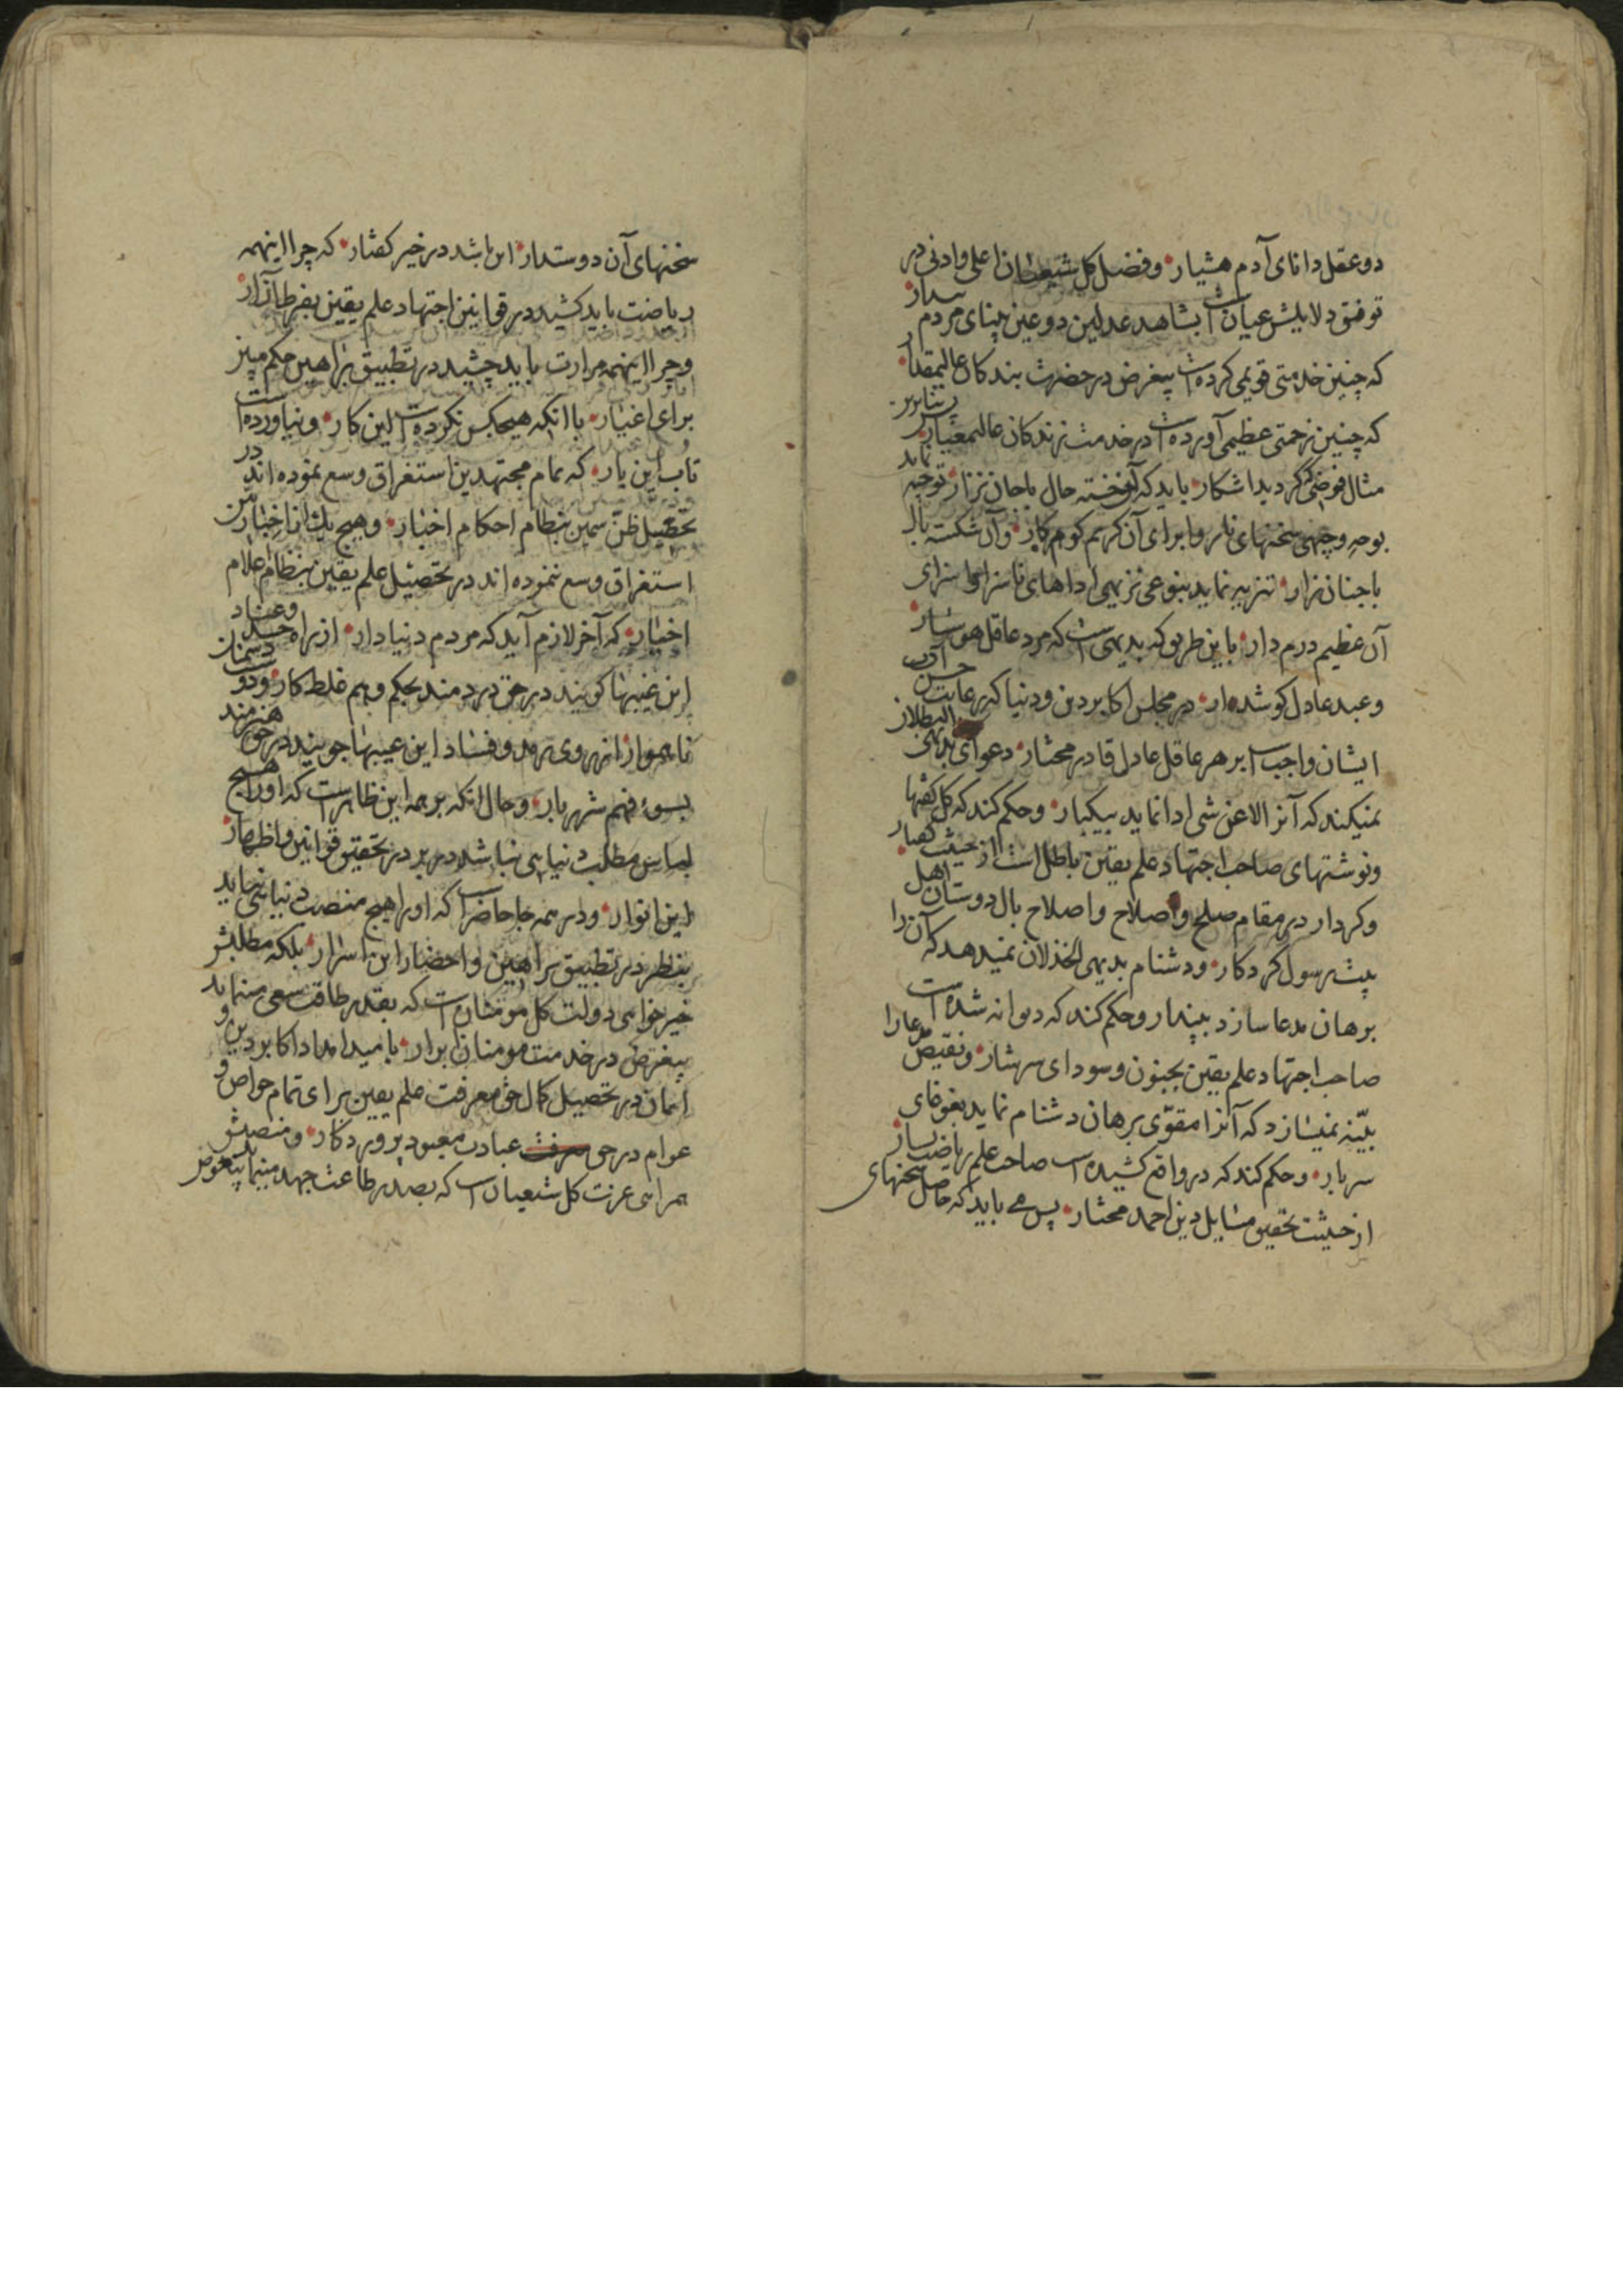 دو عقل دانای آدم هشیار و فضل کل شیعیان اعلی و ادنی در
توفیق دلایلش عیان است بشاهد عدلین دو عین بینای مردم بیدار
که چنین خدمتی قویمی کرده است بیغرض در حضرت بندکان عالیمقدار
که چنین زحمتی عظیمی آورده است در خدمت زندکان عالیمعیار
مثال فرضی کردید اشکار باید که آن خسته حال با جان نزار توجیه نماید
بوجه وجیهی سخنهای ناروا برای آن کریم کوهر کار و آن شکسته بال
با جنان زار تنزیه نماید بنوعی نزیهی اداهای ناسزا سزای
آن عظیم درم دار باین طریق که بدیهی است که مرد عاقل هوشیار
و عبد عادل کوشه‌دار در مجلس اکابر دین و دنیا که رعایت حسن آداب
ایشان واجب است بر هر عاقل عادل قادر مختار دعوای بدیهی البطلان
نمیکند که آنرا لا عن شی ادا نماید بیکبار و حکم کند که کل کفتها
و نوشتهای صاحب اجتهاد علم یقین باطل است از حیثیت کفتار
و کردار در مقام صلح و اصلاح و اصلاح بال دوستان اهل
بیت رسول کردکار و دشنام بدیهی الخذلان نمیدهد که آن را
برهان مدعا سازد بپندار و حکم کند که دیوانه شده است
صاحب اجتهاد علم یقین بجنون و سودای سرشار و نقیض مدعا را
بیّنه نمیسازد که آنرا مقوّی برهان دشنام نماید بغوغای
سربار و حکم کند که در واقع کشیده است صاحب علم ریاضت بسیار
از حیثیت تحقیق مسایل دین احمد مختار پس می باید که حاصل سخنهای
سخنهای آن دوستدار این باشد در خیر کفتار که چرا اینهمه
ریاضت باید کشید در قوانین اجتهاد علم یقین بفرط آزار
و چرا اینهمه مرارت باید چشید در تطبیق براهین حکم مبین
برای اغیار با آنکه هیچکس نکرده است این کار و نیاورده است
تاب این بار که تمام مجتهدین استغراق وسع نموده اند در
تحصیل ظنّ سمین بنظام احکام اخبار و هیچ یک از اخیار من
استغراق وسع ننموده اند در تحصیل علم یقین بنظام اعلام
اخیار که آخر لازم آید که مردم دنیا دار از راه حسد و عناد
این غیبها کویند در حق دردمند بحکم وهم غلط کار و دوست دشمنان
ناهموار از روی رمد و فساد این عیبها جویند در حق هنرمند
بسوء فهم شهر بار و حال آنکه بر همه این ظاهر است که او را هیچ
لباس مطلب دنیایی نباشد در بر در تحقیق قوانین و اظهار
این انوار و در همه جا حاضر است که او را هیچ منصب دنیایی نیاید
بنظر در تطبیق براهین و احضار این اسرار بلکه مطلبش
خیر خواهی دولت کل مومنان است که بقدر طاقت سعی مینماید
بیغرض در خدمت مومنان ابرار بامید امداد اکابر دین و
ایمان در تحصیل کمال حق معرفت علم یقین برای تمام خواص و
عوام در حق معرفت عبادت معبود پروردکار و منصبش
همراهی عزت کل شیعیان است که بصدر طاعت جهد مینماید بیغرض